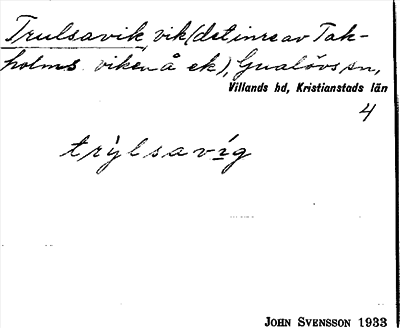 Trulsavik, vik (det inre av Tak-
holms viken å ek), Gualövs sn,
Villands hd, Kristianstads län
4
trỳlsavíg
JOHN SVENSSON 1933